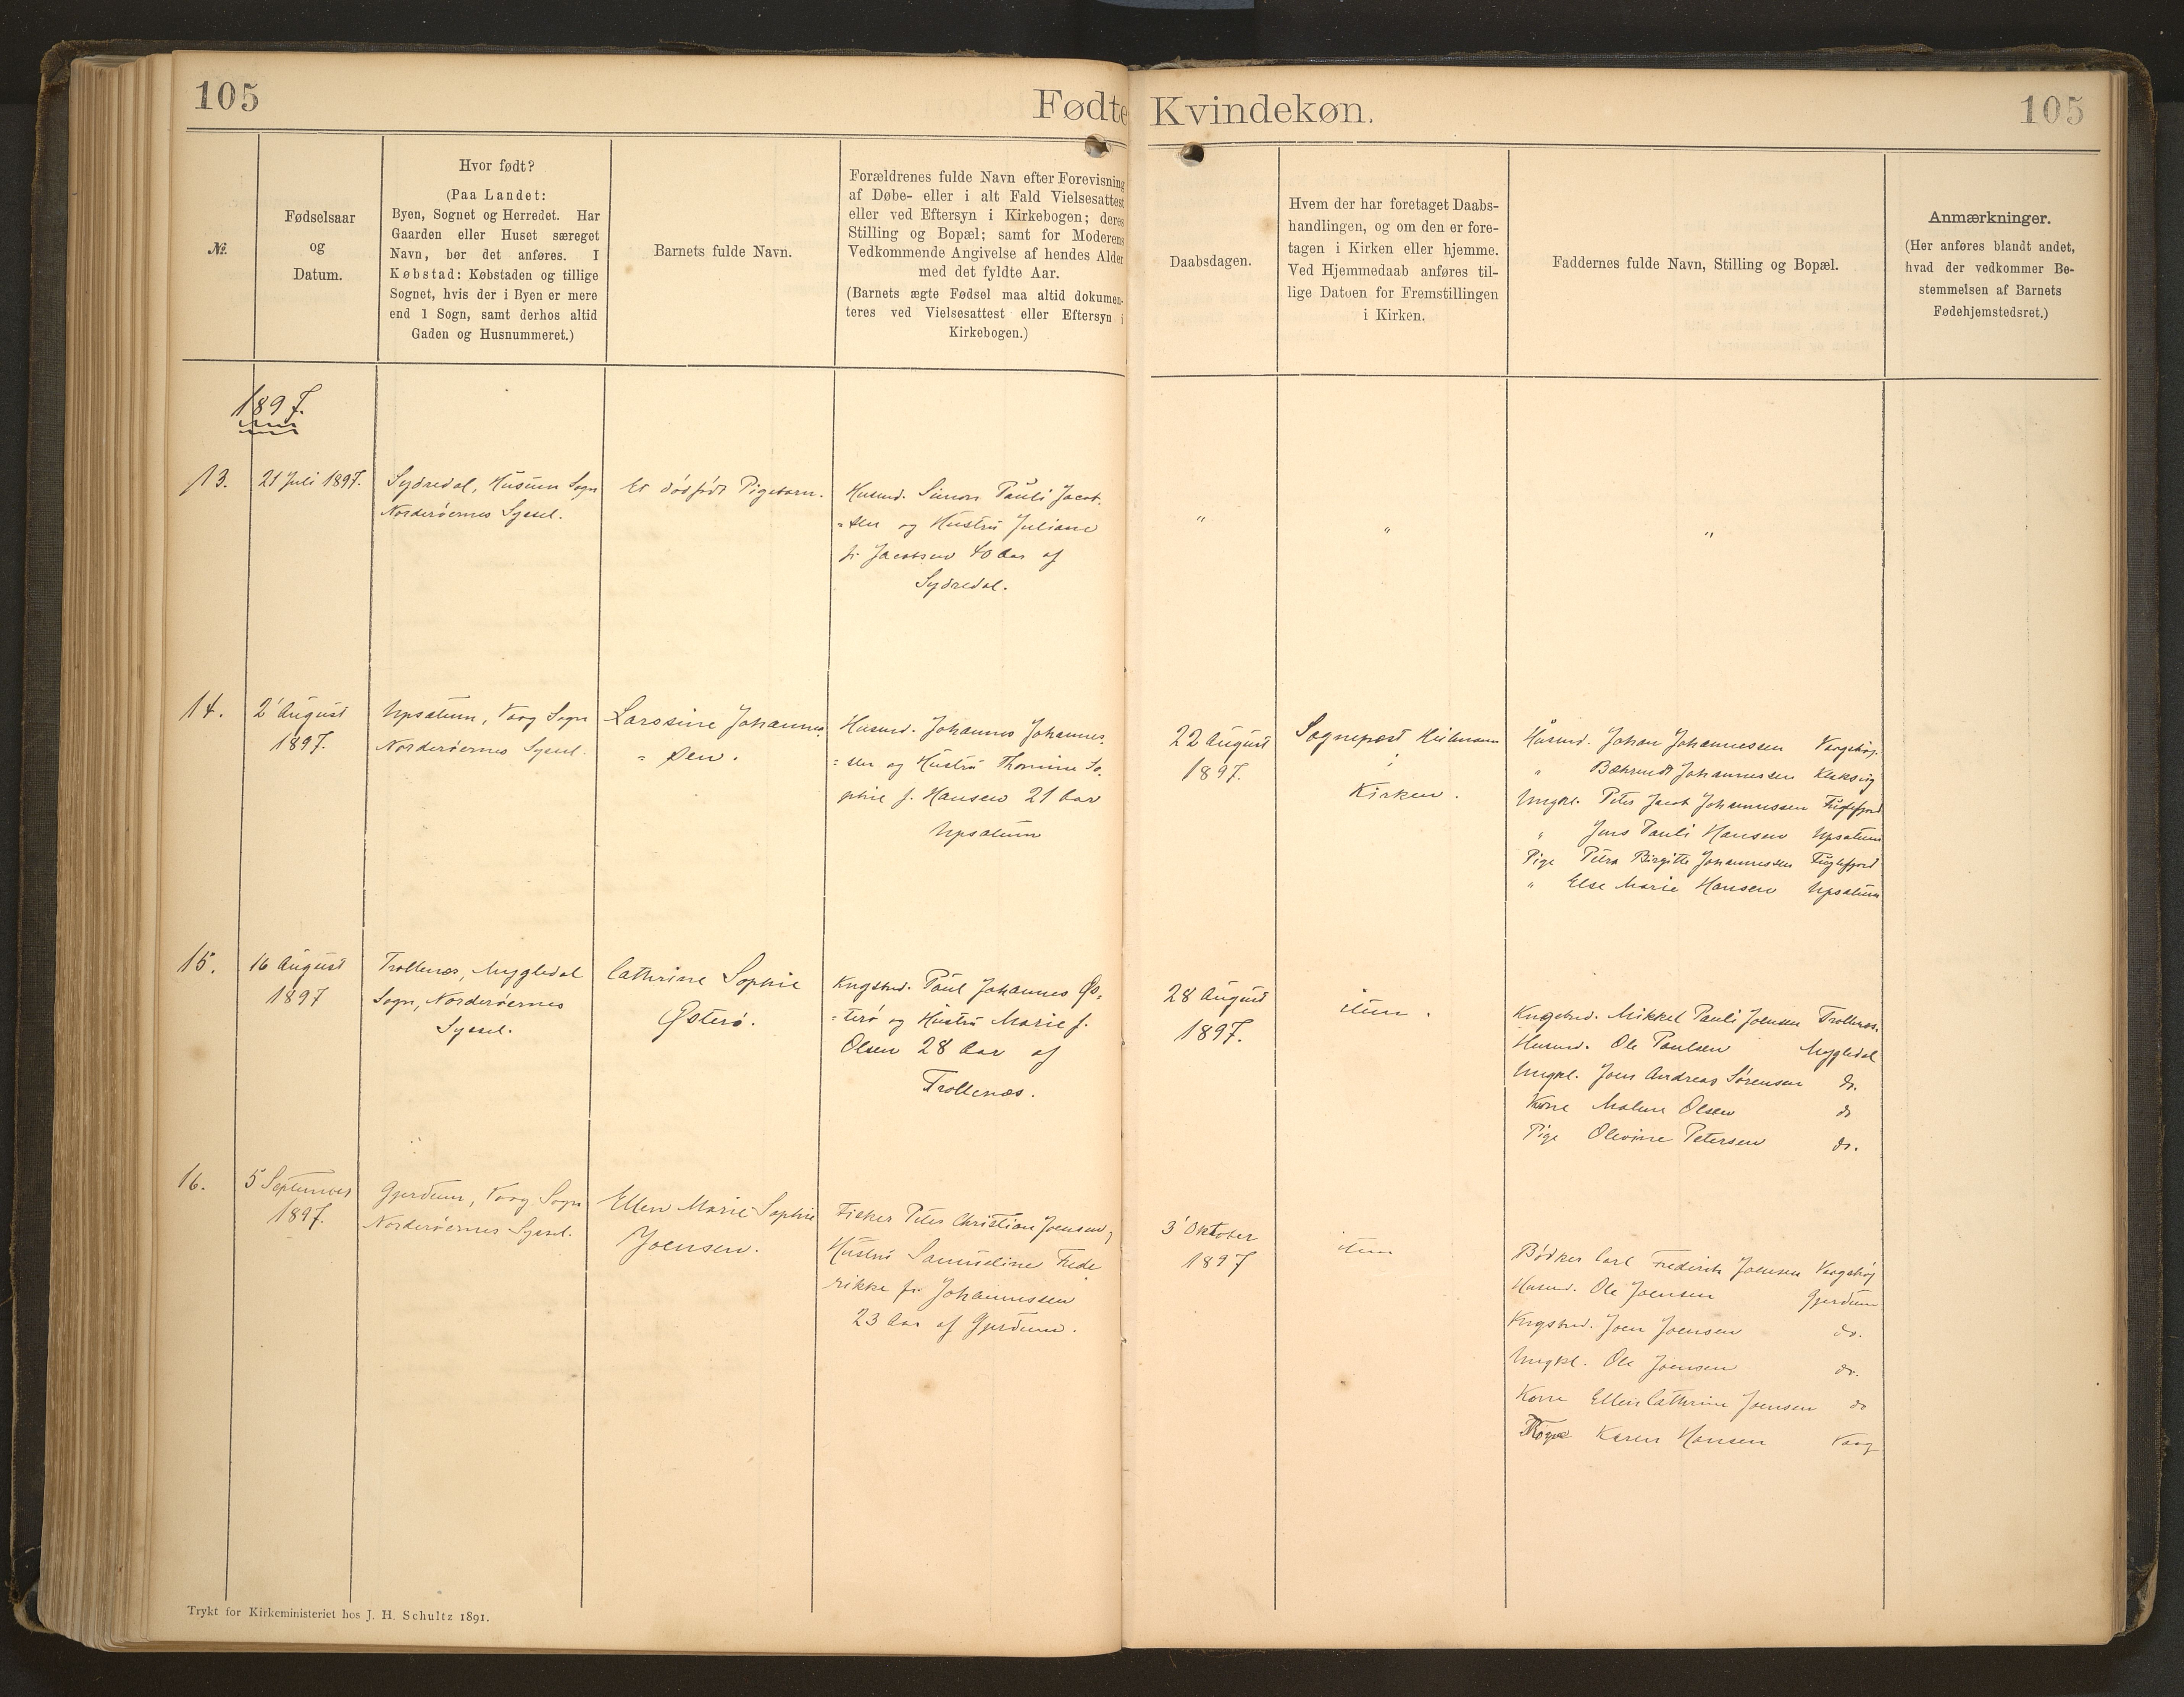 105
Fødte Kvindekøn.
105
№.
Fødselsaar
og
Datum.
Hvor født?
(Paa Landet:
Byen, Sognet og Herredet. Har
Gaarden eller Huset særeget
Navn, bør det anføres. I
Købstad: Købstaden og tillige
Sognet, hvis der i Byen er mere
end 1 Sogn, samt derhos altid
Gaden og Husnummeret.)
Barnets fulde Navn.
Forældrenes fulde Navn efter Forevisning
af Døbe- eller i alt Fald Vielsesattest
eller ved Eftersyn i Kirkebogen; deres
Stilling og Bopæl; samt for Moderens
Vedkommende Angivelse af hendes Alder
med det fyldte Aar.
(Barnets ægte Fødsel maa altid dokumen-
teres ved Vielsesattest eller Eftersyn i
Kirkebogen.)
Daabsdagen.
Hvem der har foretaget Daabs-
handlingen, og om den er fore-
tagen i Kirken eller hjemme.
Ved Hjemmedaab anføres til-
lige Datoen for Fremstillingen
i Kirken.
Faddernes fulde Navn, Stilling og Bopæl.
Anmærkninger.
(Her anføres blandt andet,
hvad der vedkommer Be-
stemmelsen af Barnets
Fødehjemstedsret.)
1897.
13.
21 Juli 1897.
Sydredal, Husum Sogn
Norderøernes Syssel.
Et dødfødt Pigebarn.
Husmd. Simon Pauli Jacob-
=sen og Hustru Juliane
f. Jacobsen 40 Aar af
Sydredal.
"
"
"
14.
2' August
1897.
Upsalum, Vaag Sogn
Norderøernes Syssel.
Larosine Johannes-
=sen.
Husmd. Johannes Johannes-
=sen og Hustru Thomine So-
phie f. Hansen 21 Aar
Upsalum
22 August
1897.
Sognepræst Heilmann
i
Kirken.
Husmd. Johan Johannessen Vaagshøj.
" Bæhrendt Johannessen Klaksvig
Ungkl. Peter Jacob Johannessen Fuglefjord
" Jens Pauli Hansen Upsalum
Pige Petra Birgitte Johannessen Fuglefjord
" Else Marie Hansen Upsalum
15.
16 August
1897
Trollenæs, Mygledal
Sogn, Norderøernes
Syssel.
Cathrine Sophie
Østerø.
Kngsbd. Poul Johannes Øs-
=terø og Hustru Marie f.
Olsen 28 Aar af
Trollenæs.
28 August
1897.
item.
Kngsbd. Mikkel Pauli Joensen Trollenæs.
Husmd. Ole Poulsen Mygledal
Ungkl. Joen Andreas Sørensen do.
Kone Malene Olsen do
Pige Olevine Petersen do.
16.
5 September
1897.
Gjerdum, Vaag Sogn
Norderøernes Syssel.
Ellen Marie Sophie
Joensen.
Fisker Peter Christian Joensen,
Hustru Samueline Frede
rikke f. Johannessen
23 Aar af Gjerdum.
3' Oktober
1897
item
Bødker Carl Frederik Joensen Vaagshøj
Husmd. Ole Joensen Gjerdum
Kngsbd. Joen Joensen do.
Ungkl. Ole Joensen do.
Kone Ellen Cathrine Joensen do
Karen Hansen Vaag
Trykt for Kirkeministeriet hos J. H. Schultz 1891.